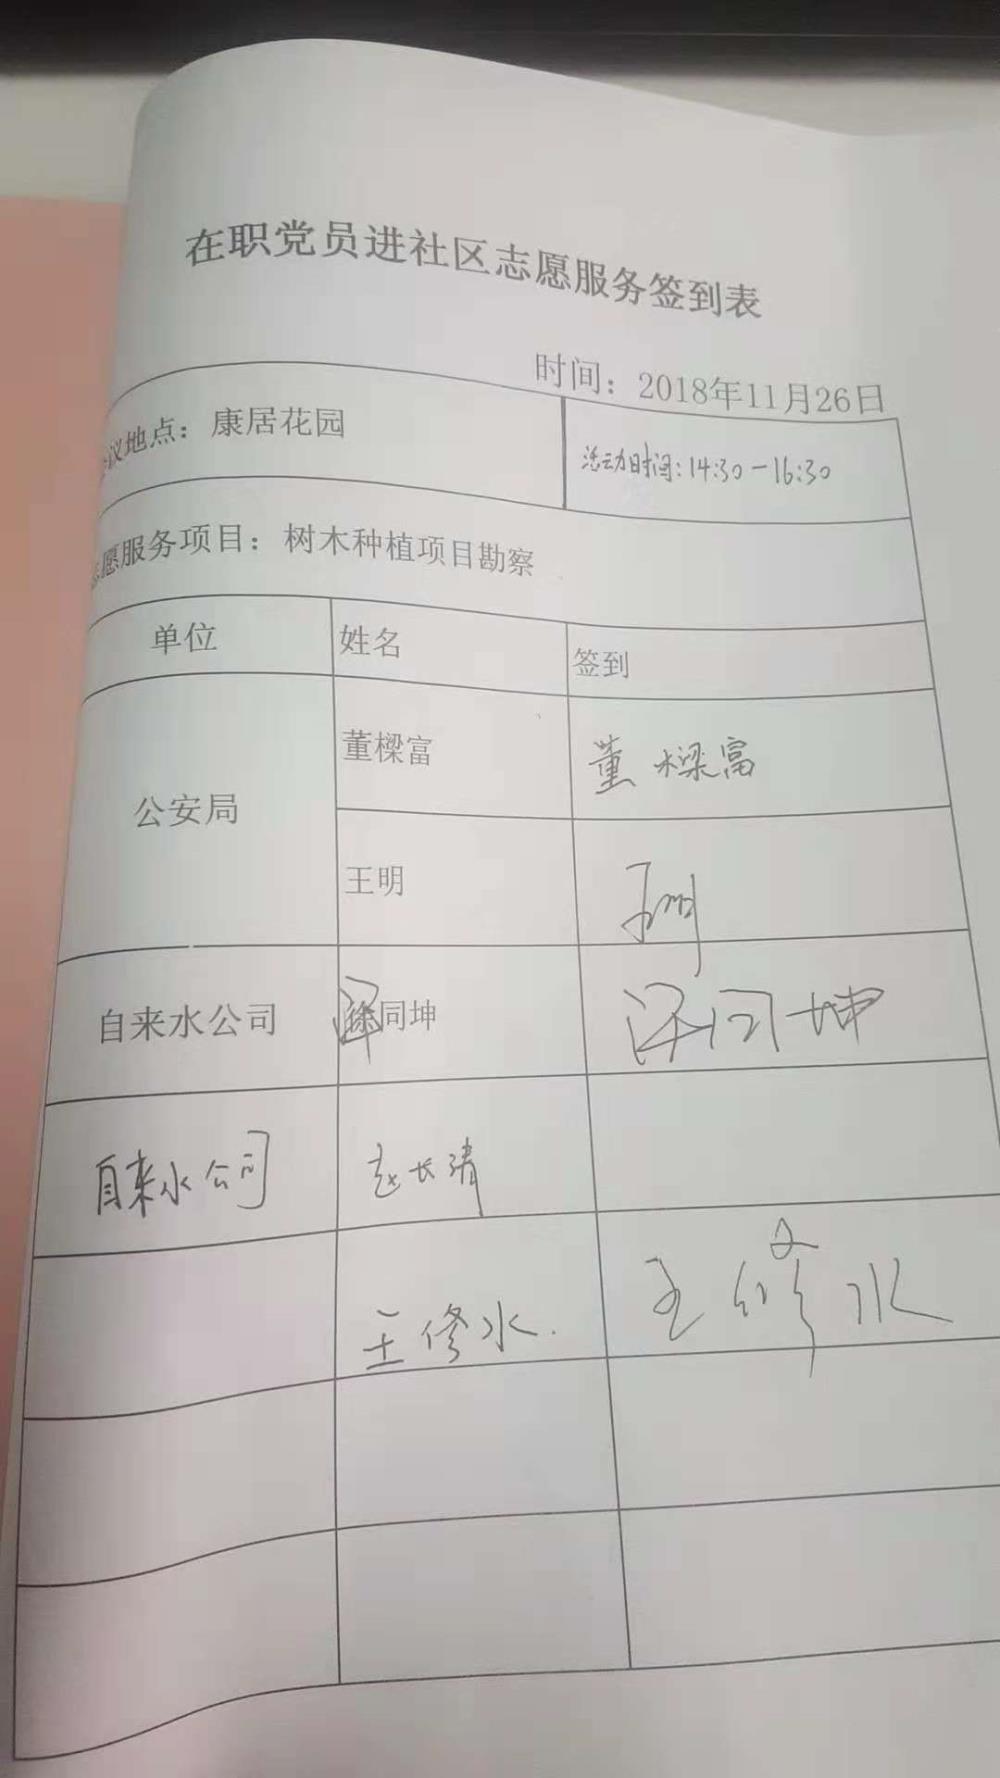 在职党员进社区志愿服务签到表
时间：2018年11月26日
议地点：康居花园
活动时间:14:30-16:30
志愿服务项目：树木种植项目勘察
单位 姓名 签到
公安局 董樑富 董樑富
王明 王明
自来水公司 同坤 同坤
自来水公司 赵长清
王修水. 王修水